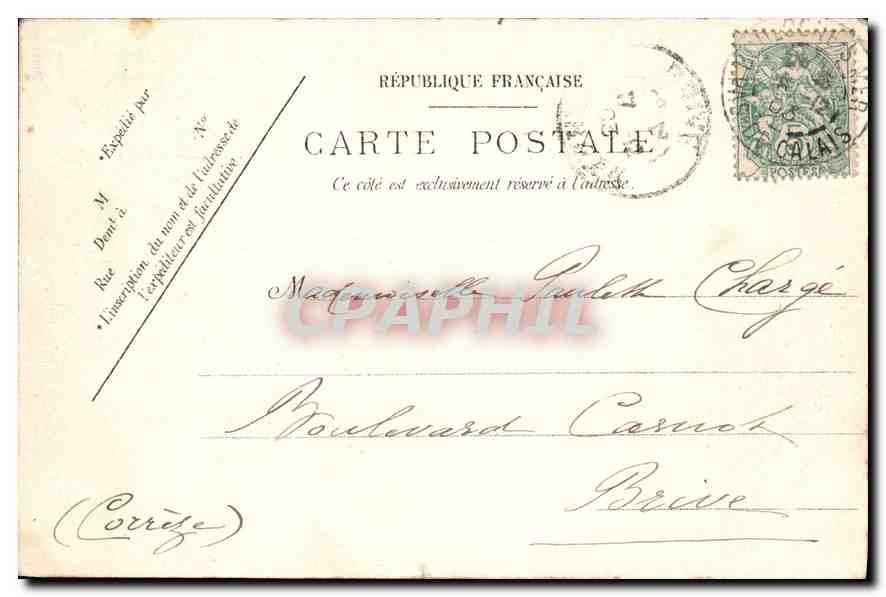 RÉPUBLIQUE FRANÇAISE
CARTE POSTALE
Ce côté est exclusivement réservé à l'adresse.
*Expédié par
M
N°
Demt à
Rue
*L'inscription du nom et de l'adresse de
l'expéditeur est facultative.
CALAIS
POSTES
Mademoiselle Paulette Chargé
CPAPHIL
Boulevard Carnot
Brive
(Corrèze)